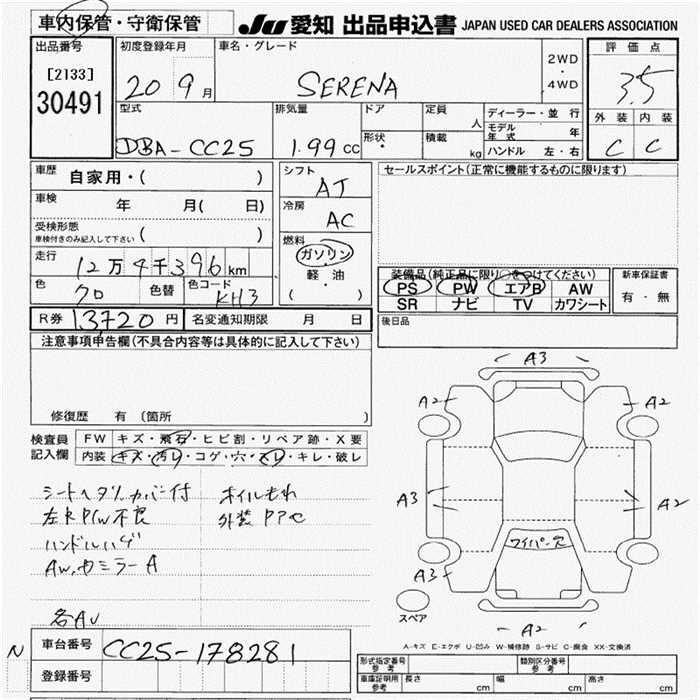 車内保管・守衛保管
JU 愛知 出品申込書 JAPAN USED CAR DEALERS ASSOCIATION
出品番号 初度登録年月 車名・グレード 2WD ・ 4WD 評価点
[2133] 30491 20 9月 SERENA 3.5
型式 排気量 ドア 定員 人 ディーラー・並行 外装 内装
形状 ・ 積載 kg モデル年式 年
DBA-CC25 1.99 CC ハンドル 左・右 C C
車歴 自家用・( ) シフト AT セールスポイント(正常に機能するものに限ります)
車検 年 月( 日) 冷房 AC
受検形態 車検付きのみ記入して下さい ( )
走行 12万4千396km 燃料 ガソリン ・ 軽油 ( )
装備品(純正品に限り○をつけてください) 新車保証書
色 クロ 色替 色コード KH3 PS PW エアB AW 有・無
SR ナビ TV カワシート
R券 13,720円 名変通知期限 月 日 後日品
注意事項申告欄(不具合内容等は具体的に記入して下さい)
修復歴 有 (箇所
検査員記入欄 FW キズ・飛石・ヒビ割・リペア跡・X要
内装 キズ・汚レ・コゲ・穴・スレ・キレ・破レ
A3
A2 A2
シートヘタリ,カバー付 オイルもれ
A3 A2
左R P/W不良
ハンドルハゲ
ワイパー欠
AW,
ミラーA
A3
スペア
各AU
A2
A-キズ E-エクボ U-凹み W-補修跡 S-サビ C-腐食 XX-交換済
N 車台番号 CC25-178281
形式指定番号 参考 類別区分番号 参考
登録番号
車庫証明用 参考 長さ cm 幅 cm 高さ cm